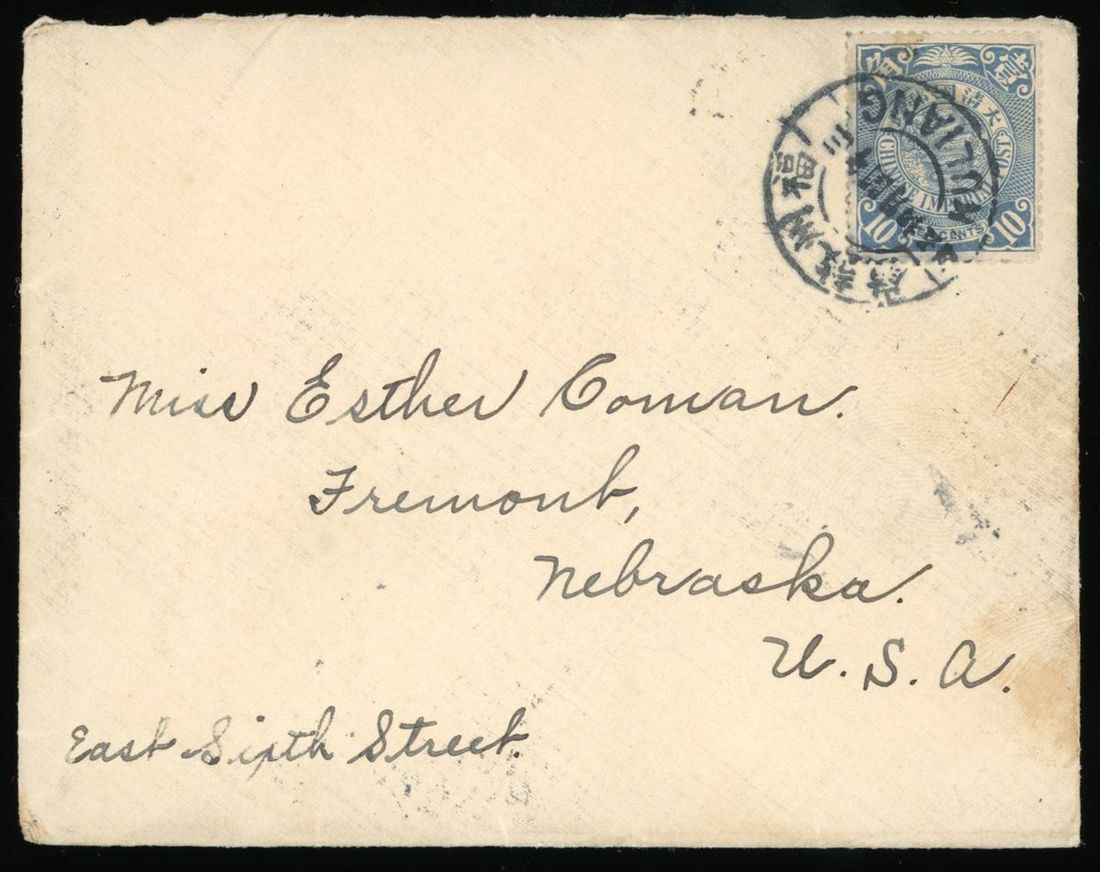 大清國
CHINESE IMPERIAL POST
10 CENTS 10
KULIANG
福州
Miss Esther Coman.
Fremont,
Nebraska.
U. S. A.
East Sixth Street.